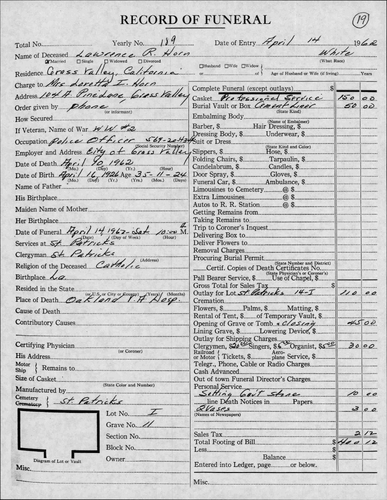 RECORD OF FUNERAL
19
Total No. Yearly No. 189 Date of Entry April 14 1962
Name of Deceased Lawrence R. Horn White
Married Single Widowed Divorced Husband Wife Widow (What Race)
Residence Grass Valley, California Age of Husband or Wife (if living)
Charge to Mrs Loretta I. Horn
Address 104 A Pinedove, Grass Valley
Order given by phone
(or informant)
How Secured
If Veteran, Name of War WW #2
Occupation Police Officer
(Social Security Number)
Employer and Address City of Grass Valley
Date of Death April 10, 1962
Date of Birth April 16, 1926 Age 35-11-24
Name of Father
His Birthplace
Maiden Name of Mother
Her Birthplace
Date of Funeral April 14, 1962-Sat 10:00 M.
(Date) (Day of Week) (Hour)
Services at St Patricks
Clergyman St Patricks
Religion of the Deceased Catholic
Birthplace La
Resided in the State
(U.S., City or County) (Years) (Months)
Place of Death Oakland Hosp.
Cause of Death
Contributory Causes
Certifying Physician
(or Coroner)
His Address
Motor
Ship Remains to
Size of Casket
(State Color and Number)
Manufactured by
Cemetery
Crematory St. Patricks
Lot No. I
Grave No. 11
Section No.
Block No.
Owner
Diagram of Lot or Vault
Misc.
Complete Funeral (except outlays) $
Casket Professional Service 150 00
Burial Vault or Box Cement Liner 80 00
(State Kind)
Embalming Body
(Name of Embalmer)
Barber, $ Hair Dressing, $
Dressing Body, $ Underwear, $
Suit or Dress
(State Kind and Color)
Slippers, $ Hose, $
Folding Chairs, $ Tarpaulin, $
Candelabrum, $ Candles, $
Door Spray, $ Gloves, $
Funeral Car, $ Ambulance, $
Limousines to Cemetery @ $
Extra Limousines @ $
Autos to R. R. Station @ $
Getting Remains from
Taking Remains to
Trip to Coroner's Inquest
Delivering Box to
Deliver Flowers to
Removal Charges
Procuring Burial Permit
(State Number and District)
Certif. Copies of Death Certificates No.
(State Physician's or Coroner's)
Pall Bearer Service, $ Use of Chapel, $
Gross Total for Sales Tax $
Outlay for Lot St Patricks 14-I 110 00
Cremation
Flowers, $ Palms, $ Matting, $
Rental of Tent, $ of Temporary Vault, $
Opening of Grave or Tomb + closing 45 00
Lining Grave, $ Lowering Device, $
Outlay for Shipping Charges
Clergymen, $ Singers, $ Organist, $ 30 00
Railroad Aero-
or Motor Tickets, $ plane Service, $
Telegr., Phone, Cable or Radio Charges
Cash Advanced
Out of town Funeral Director's Charges
Personal Service
Setting Gov't Stone 10 00
line Death Notices in Papers
3 00
(Names of Newspapers)
Sales Tax 2 12
Total Footing of Bill $ 400 12
Less $
Balance $
Entered into Ledger, page or below.
Misc.